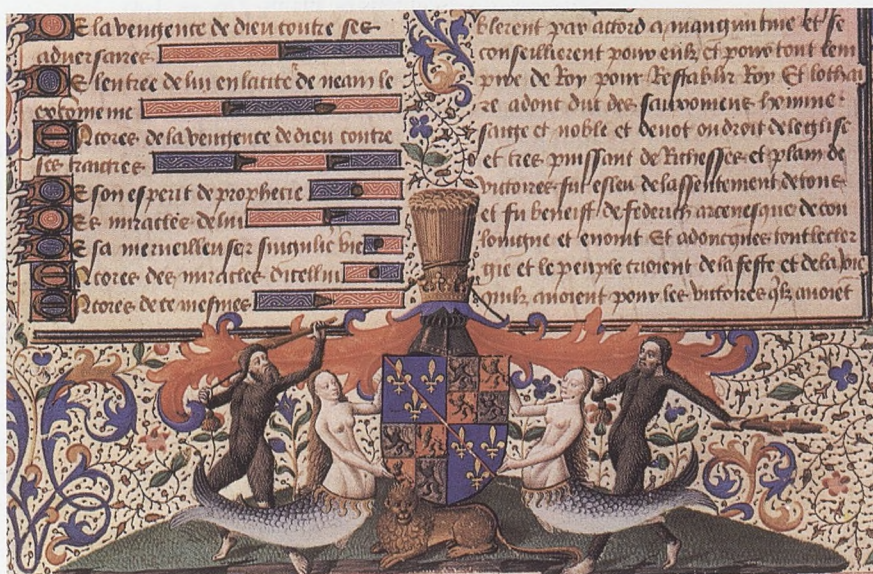 De la vengence de dieu contre ses
adversaires
De lentree de lui en la cite de
Encores de la vengence de dieu contre
ses traictres
De son esperit de prophecie
Des miracles de lui
De sa merveilleuse singuliere vie
Encores des miracles dicellui
Encores de ce mesmes
blerent par accord a et se
conseillerent pour eulx et pour tout lem
pire de Roy pour Restablir Roy Et lothai
re adont duc des homme
saige et noble et devot ou droit de leglise
et tres puissant de Richesses et plain de
victoires fu esleu de lassentement de tous
et fu beneist de federich arcevesque de cou
longne et enoint Et adoncques tout le cler
gie et le peuple crioient de la feste et de la Joie
quilz avoient pour les victoires qlz avoiet